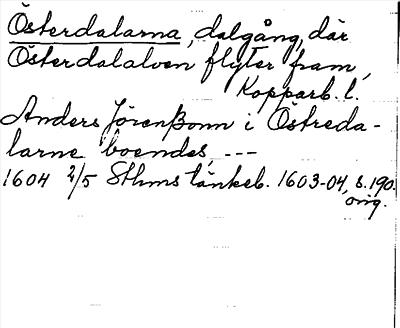 Österdalarna, dalgång, där
Österdalälven flyter fram,
Kopparb. l.
Anders Jörenßonn i Östreda-
larne boendes, ---
1604 2/5 Sthms tänkeb. 1603-04, s. 190.
orig.